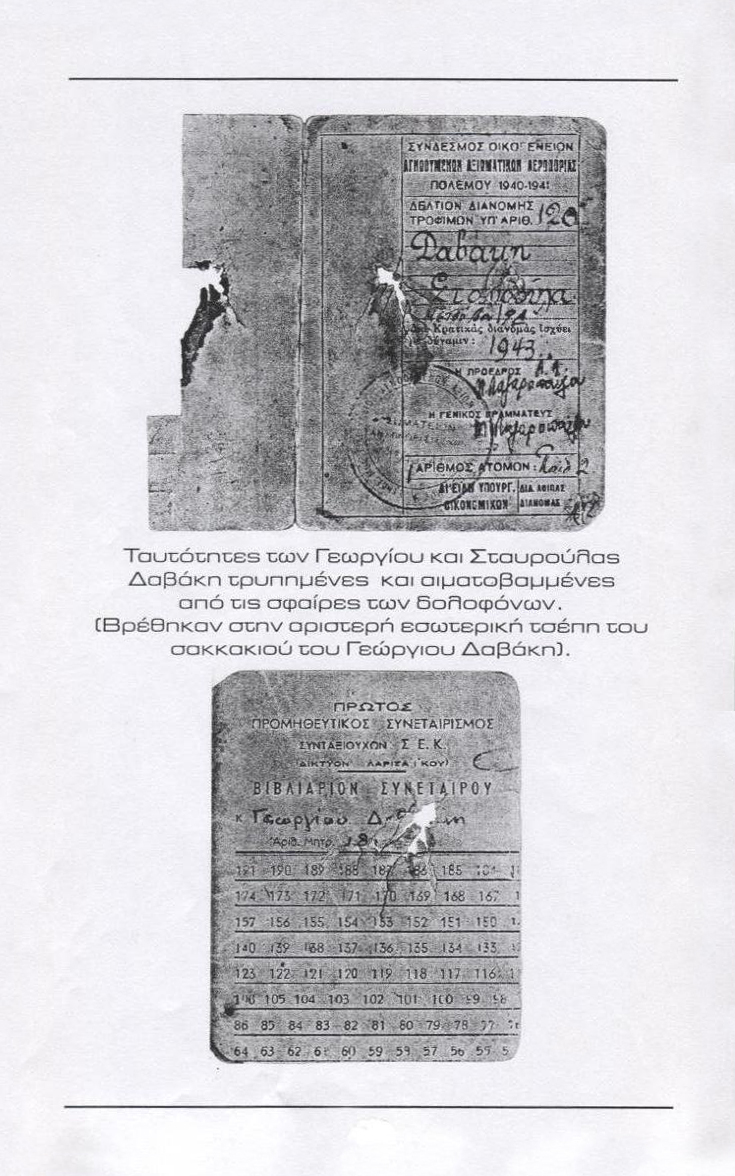 ΣΥΝΔΕΣΜΟΣ ΟΙΚΟΓΕΝΕΙΩΝ
ΑΓΝΟΟΥΜΕΝΩΝ ΑΞΙΩΜΑΤΙΚΩΝ ΑΕΡΟΠΟΡΙΑΣ
ΠΟΛΕΜΟΥ 1940-1941
ΔΕΛΤΙΟΝ ΔΙΑΝΟΜΗΣ
ΤΡΟΦΙΜΩΝ ΥΠ' ΑΡΙΘ. 120
Δαβάκη
Σταυρούλα
Κρατικάς διανομάς ἰσχύει
1943
Η ΠΡΟΕΔΡΟΣ
Η ΓΕΝΙΚΟΣ ΓΡΑΜΜΑΤΕΥΣ
ΑΡΙΘΜΟΣ ΑΤΟΜΩΝ: 2
ΥΠΟΥΡΓ. ΔΙΑ
ΟΙΚΟΝΟΜΙΚΩΝ ΔΙΑΝΟΜΑΣ
Ταυτότητες των Γεωργίου και Σταυρούλας
Δαβάκη τρυπημένες και αιματοβαμμένες
από τις σφαίρες των δολοφόνων.
(Βρέθηκαν στην αριστερή εσωτερική τσέπη του
σακκακιού του Γεώργιου Δαβάκη).
ΠΡΩΤΟΣ
ΠΡΟΜΗΘΕΥΤΙΚΟΣ ΣΥΝΕΤΑΙΡΙΣΜΟΣ
ΣΥΝΤΑΞΙΟΥΧΩΝ Σ.Ε.Κ.
ΔΙΚΤΥΟΝ ΛΑΡΙΣΑ·Ι·ΚΟΥ)
ΒΙΒΛΙΑΡΙΟΝ ΣΥΝΕΤΑΙΡΟΥ
κ Γεωργίου
Ἀριθ. Μητρ.
191 190 189 188 187 186 185
174 173 172 171 170 169 168 167
157 156 155 154 153 152 151 150
140 139 138 137 136 135 134 133
123 122 121 120 119 118 117 116
105 104 103 102 101 100 99 98
86 85 84 83 82 81 80 79 78 77
64 63 62 61 60 59 58 57 56 55